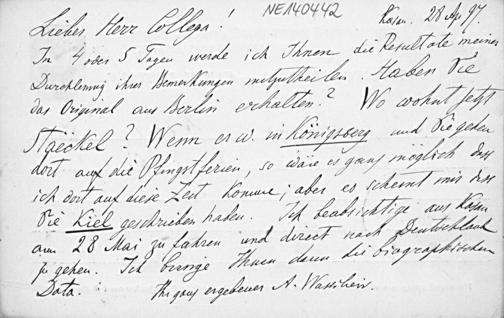 NE140442
Kasan. 28 Ap 97.
Lieber Herr College!
In 4 oder 5 Tagen werde ich Ihnen die Resultate meiner
Durchlesung ihrer Bemerkungen mitzutheilen. Haben Sie
das Original aus Berlin erhalten? Wo wohnt jetzt
Staeckel? Wenn er w. in Königsberg und Sie gehen
dort auf die Pfingstferien, so wäre es ganz möglich dass
ich dort auf diese Zeit komme; aber es scheint mir dass
Sie Kiel geschrieben haben. Ich beabsichtige aus Kasan
am 28 Mai zu fahren und direct nach Deutschland
zu gehen. Ich bringe Ihnen dann die biographischen
Data. Ihr ganz ergebener A. Wassiliew.